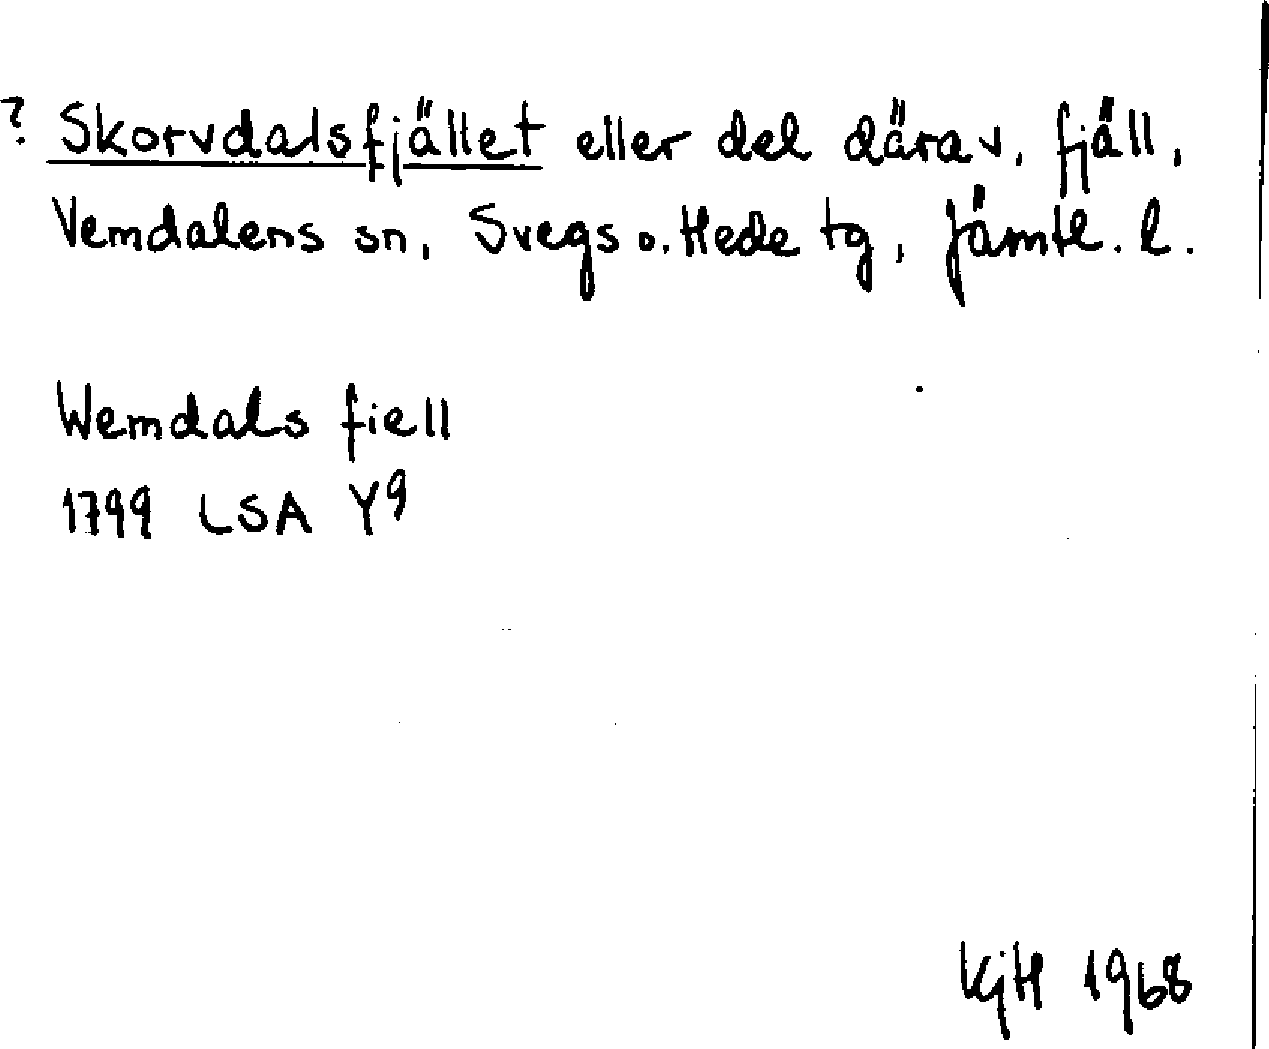 ? Skorvdalsfjället eller del därav, fjäll,
Vemdalens sn, Svegs o. Hede tg, Jämtl. l.
Wemdals fiell
1799 LSA Y9
KjH 1968